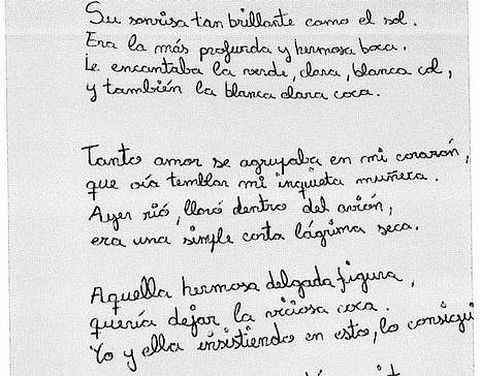 Su sonrisa tan brillante como el sol.
Era la más profunda y hermosa boca.
Le encantaba la verde, clara, blanca col,
y también la blanca clara coca.
Tanto amor se agrupaba en mi corazón,
que oía temblar mi inquieta muñeca.
Ayer rió, lloró dentro del avión,
era una simple corta lágrima seca.
Aquella hermosa delgada figura,
quería dejar la viciosa coca.
Yo y ella insistiendo en esto, lo consegui